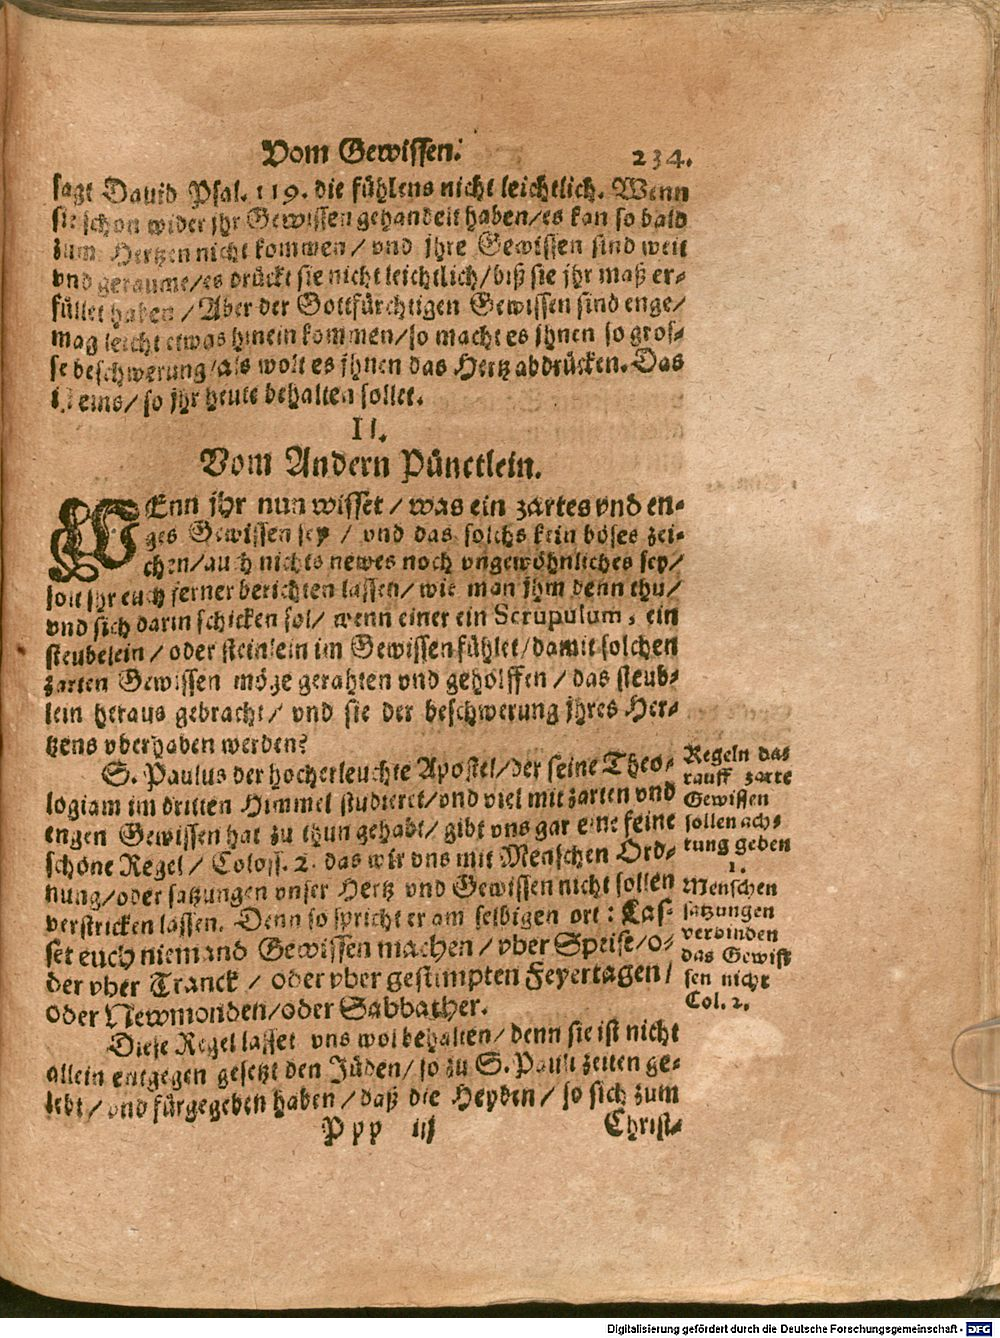 Vom Gewissen. 234.
sagt Dauid Psal. 119. die fühlens nicht leichtlich. Wenn
sie schon wider jhr Gewissen gehandelt haben/es kan so bald
zum Hertzen nicht kommen/ vnd jhre Gewissen sind weit
vnd geraume/es drückt sie nicht leichtlich/biß sie jhr maß er-
füllet haben/Aber der Gottfürchtigen Gewissen sind enge/
mag leicht etwas hinein kommen/so macht es jhnen so gros-
se beschwerung/als wolt es jhnen das Hertz abdrücken. Das
ist eins/ so jhr heute behalten sollet.
II.
Vom Andern Pünctlein.
WEnn jhr nun wisset/ was ein zartes vnd en-
ges Gewissen sey/ vnd das solchs kein böses zei-
chen/auch nichts newes noch vngewöhnliches sey/
solt jhr euch ferner berichten lassen/ wie man jhm denn thu/
vnd sich darin schicken sol/ wenn einer ein Scrupulum, ein
steubelein/ oder steinlein im Gewissen fühlet/damit solchen
zarten Gewissen möge gerahten vnd geholffen/ das steub-
lein heraus gebracht/ vnd sie der beschwerung jhres Her-
tzens vberhaben werden?
S. Paulus der hocherleuchte Apostel/der seine Theo-
logiam im dritten Himmel studieret/vnd viel mit zarten vnd
engen Gewissen hat zu thun gehabt/ gibt vns gar eine feine
schöne Regel/ Coloss. 2. das wir vns mit Menschen Ord-
nung/oder satzungen vnser Hertz vnd Gewissen nicht sollen
verstricken lassen. Denn so spricht er am selbigen ort: Las-
set euch niemand Gewissen machen/ vber Speise/o-
der vber Tranck/ oder vber gestimpten Feyertagen/
oder Newmonden/oder Sabbather.
Diese Regel lasset vns wol behalten/ denn sie ist nicht
allein entgegen gesetzt den Jüden/ so zu S. Pauli zeiten ge-
lebt/ vnd fürgegeben haben/ daß die Heyden/ so sich zum
Ppp iij Christ-
Regeln da-
rauff zarte
Gewissen
sollen ach-
tung geben
1.
Menschen
satzungen
verbinden
das Gewis-
sen nicht
Col. 2.
Digitalisierung gefördert durch die Deutsche Forschungsgemeinschaft - DFG